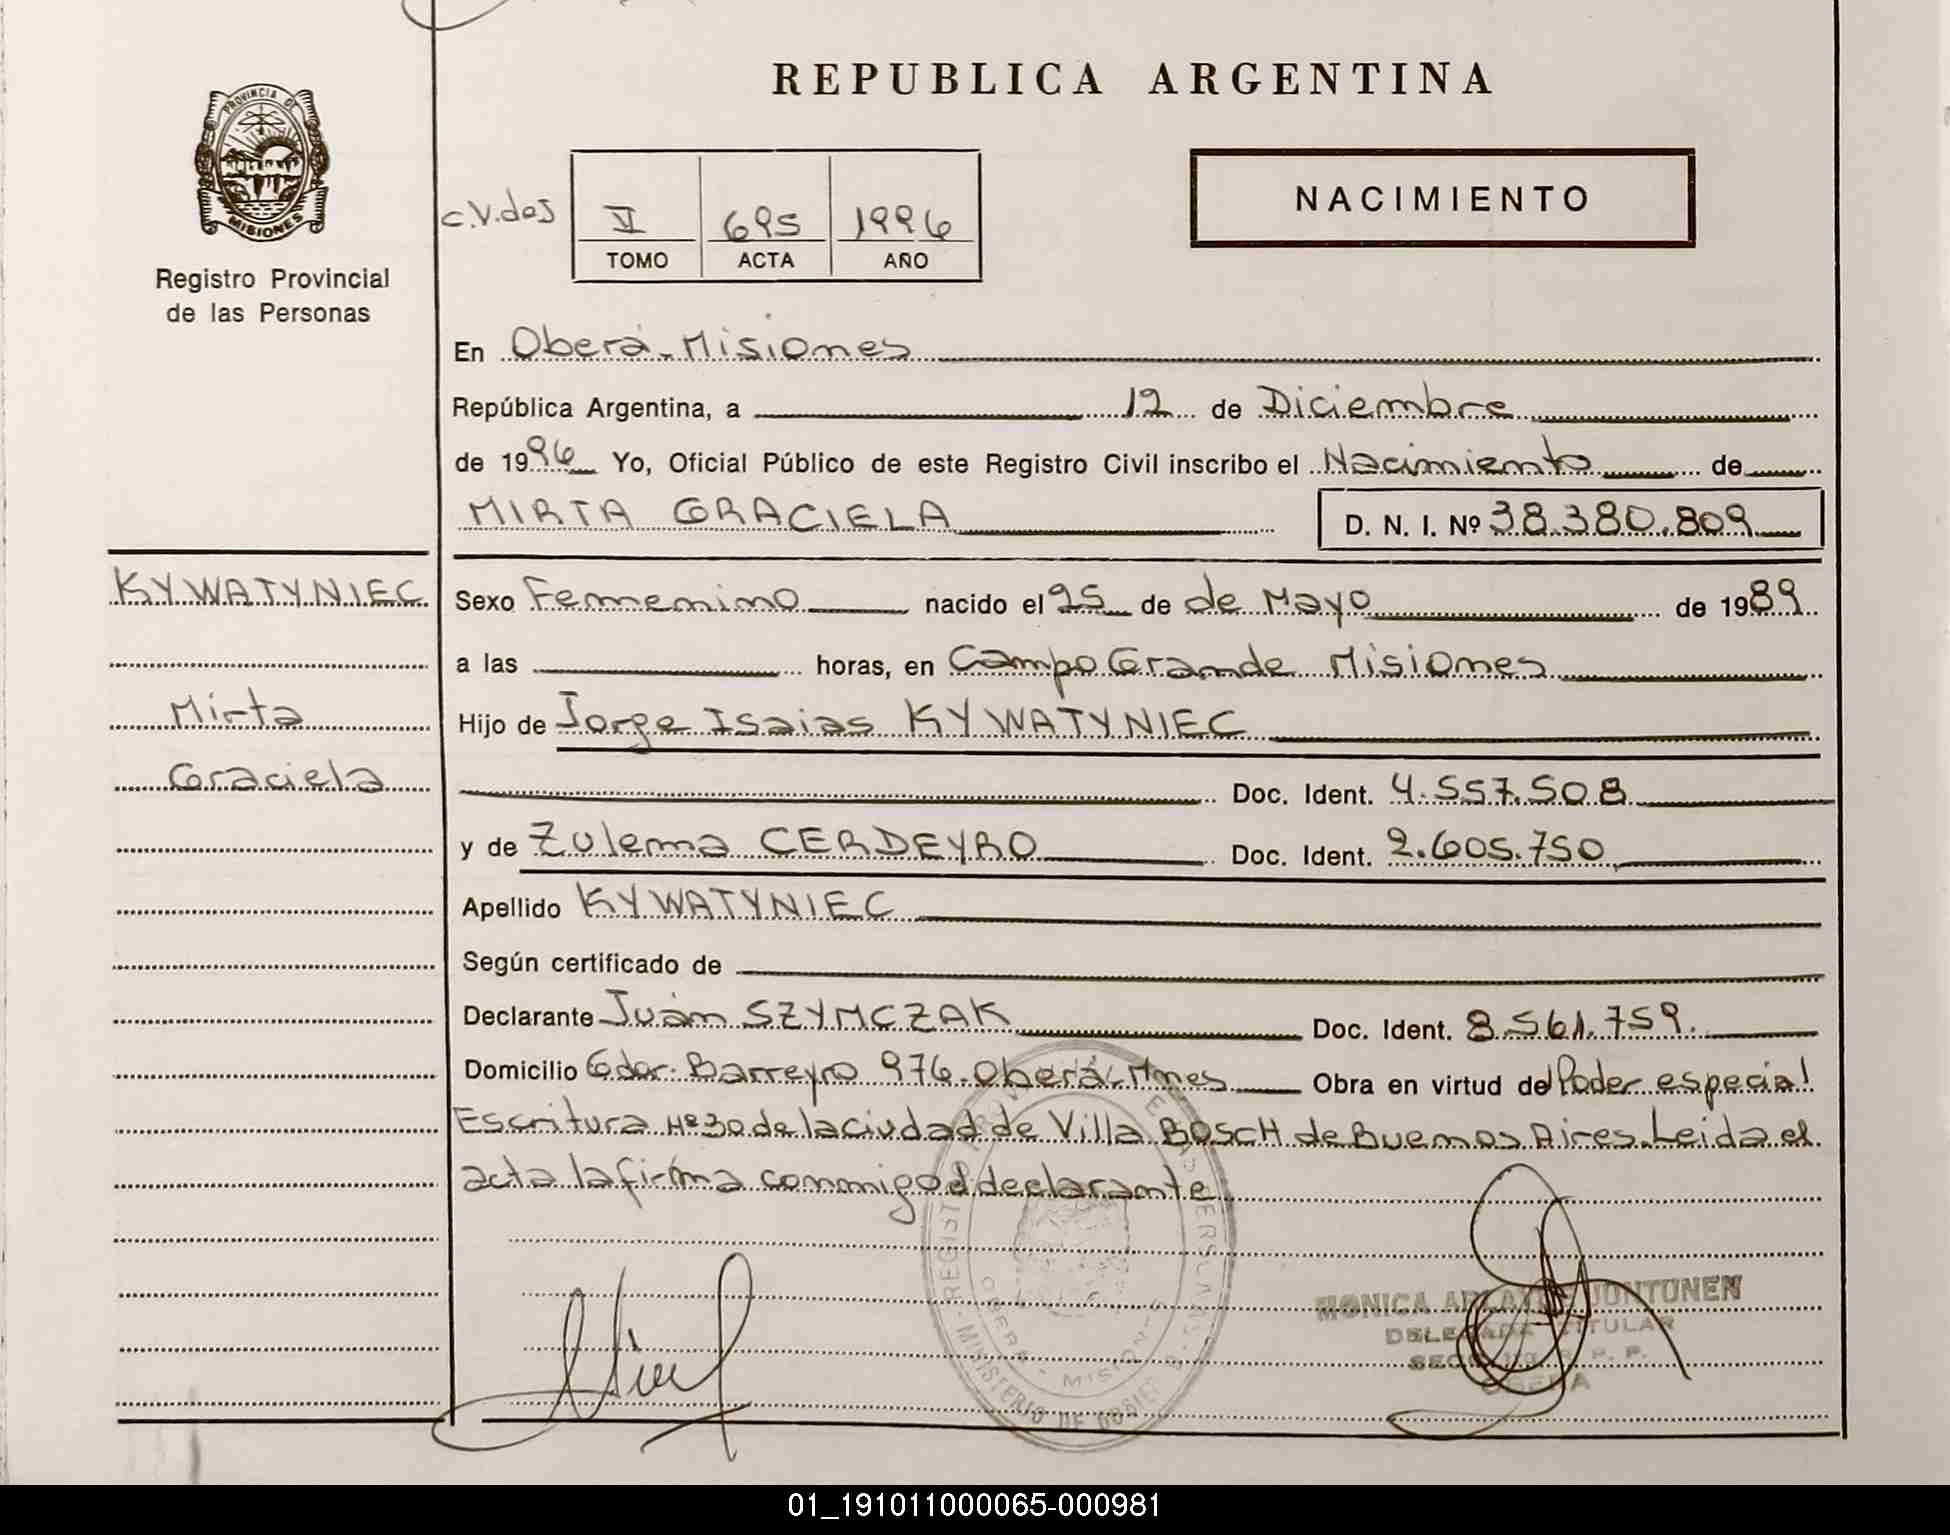 REPUBLICA ARGENTINA
PROVINCIA DE
MISIONES
Registro Provincial
de las Personas
NACIMIENTO
c.V.dos
V 695 1996
TOMO ACTA AÑO
En Oberá - Misiones
República Argentina, a 12 de Diciembre
de 1996 Yo, Oficial Público de este Registro Civil inscribo el Nacimiento de
MIRTA GRACIELA D. N. I. Nº 38.380.809
KYWATYNIEC
Mirta
Graciela
Sexo Femenino nacido el 25 de de Mayo de 1989
a las horas, en Campo Grande Misiones
Hijo de Jorge Isaias KYWATYNIEC
Doc. Ident. 4.557.508
y de Zulema CERDEYRO Doc. Ident. 2.605.750
Apellido KYWATYNIEC
Según certificado de
Declarante Juán SZYMCZAK Doc. Ident. 8.561.759.
Domicilio Gdor. Barreyro 976. Oberá - Mnes Obra en virtud de Poder especial
Escritura Nº 30 de la ciudad de Villa BOSCH de Buenos Aires. Leida el
acta la firma conmigo el declarante
MONICA JONTUNEN
DELEGADA TITULAR
OBERA
MINISTERIO DE
OBERA - MISIONES
01_191011000065-000981